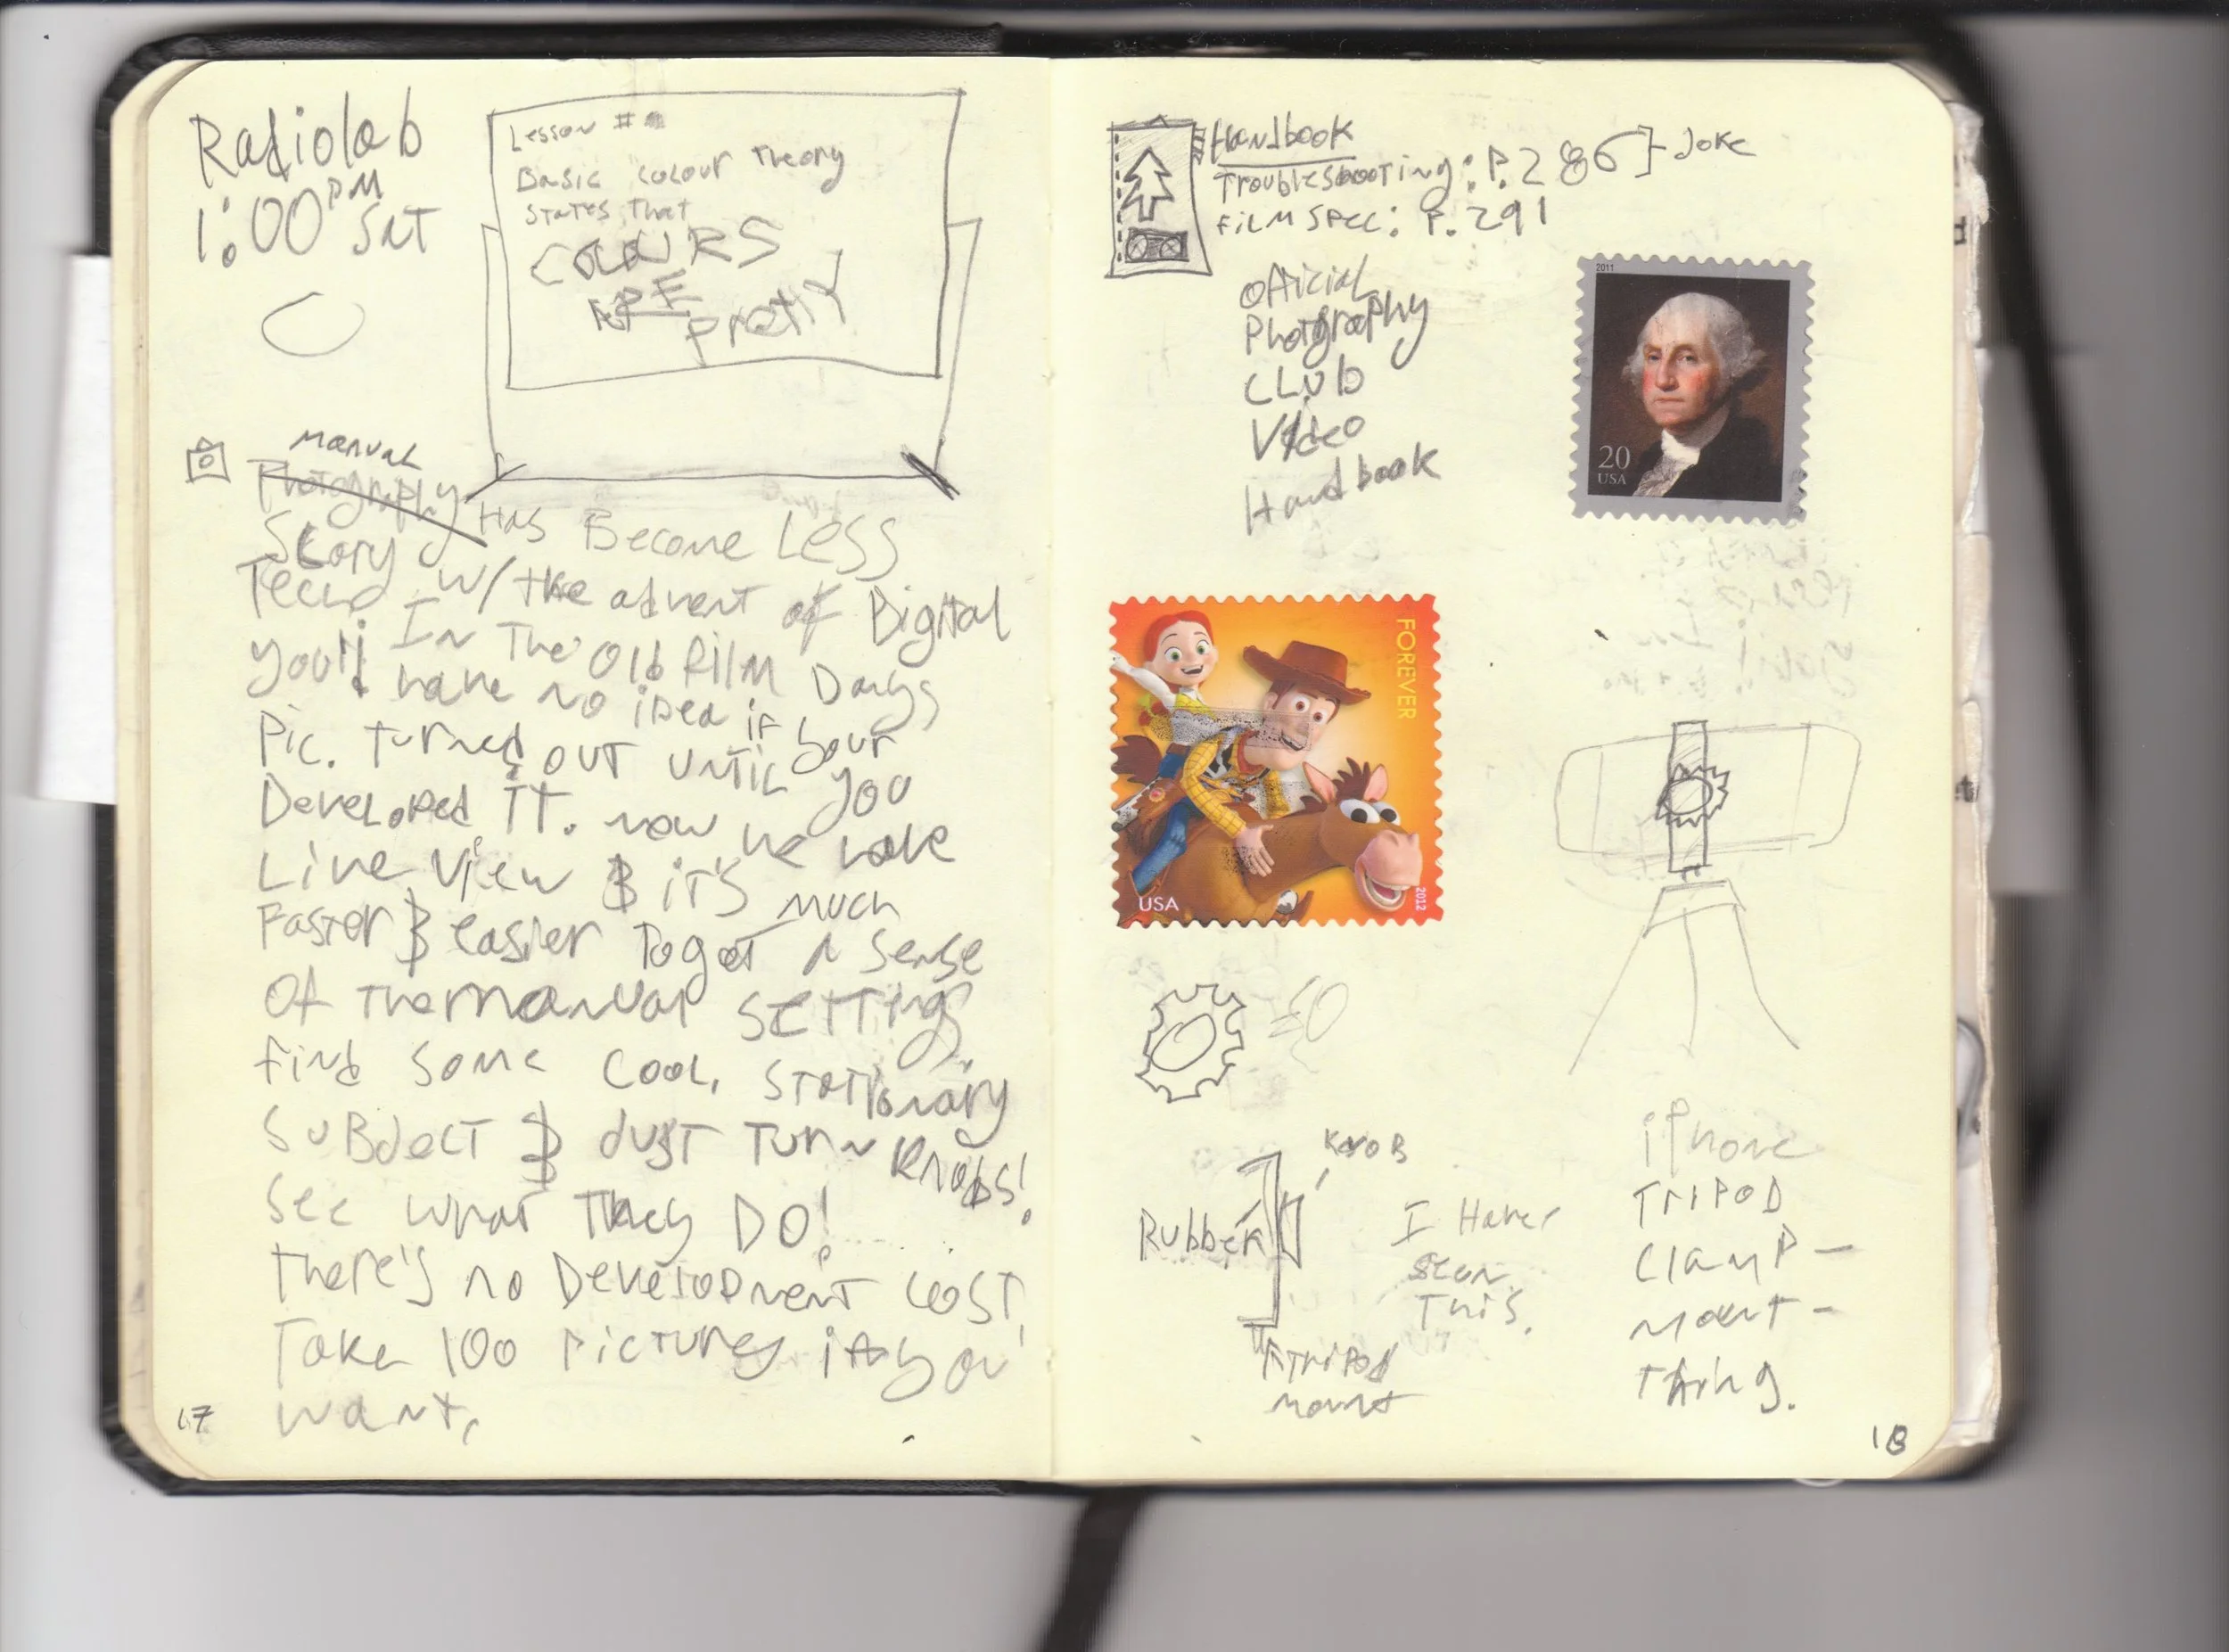 Radiolab
1:00 PM SAT
Lesson #
Basic colour Theory
states that
COLOURS
ARE
Pretty
manual
Photography
Story HAS Become Less
Tech w/ the advent of Digital
In The Old film Days
you'll have no idea if your
Pic. turned out until you
Developed IT. now we have
Live View & it's much
Faster & easier To get A Sense
Of The manual settings
find some cool, stationary
SUBJECT & JUST TURN KNOBS!
See what They DO!
There's no Development COST,
Take 100 Pictures if you
want.
17
Handbook
Troubleshooting: P. 286 Joke
FILM SPEC: P. 291
Official
Photography
CLUb
Video
Handbook
2011
20
USA
FOREVER
USA
2012
KNOB
Rubber
TriPod
mount
I Have
seen
This.
iPhone
TRIPOD
Clamp -
mount -
Thing.
18